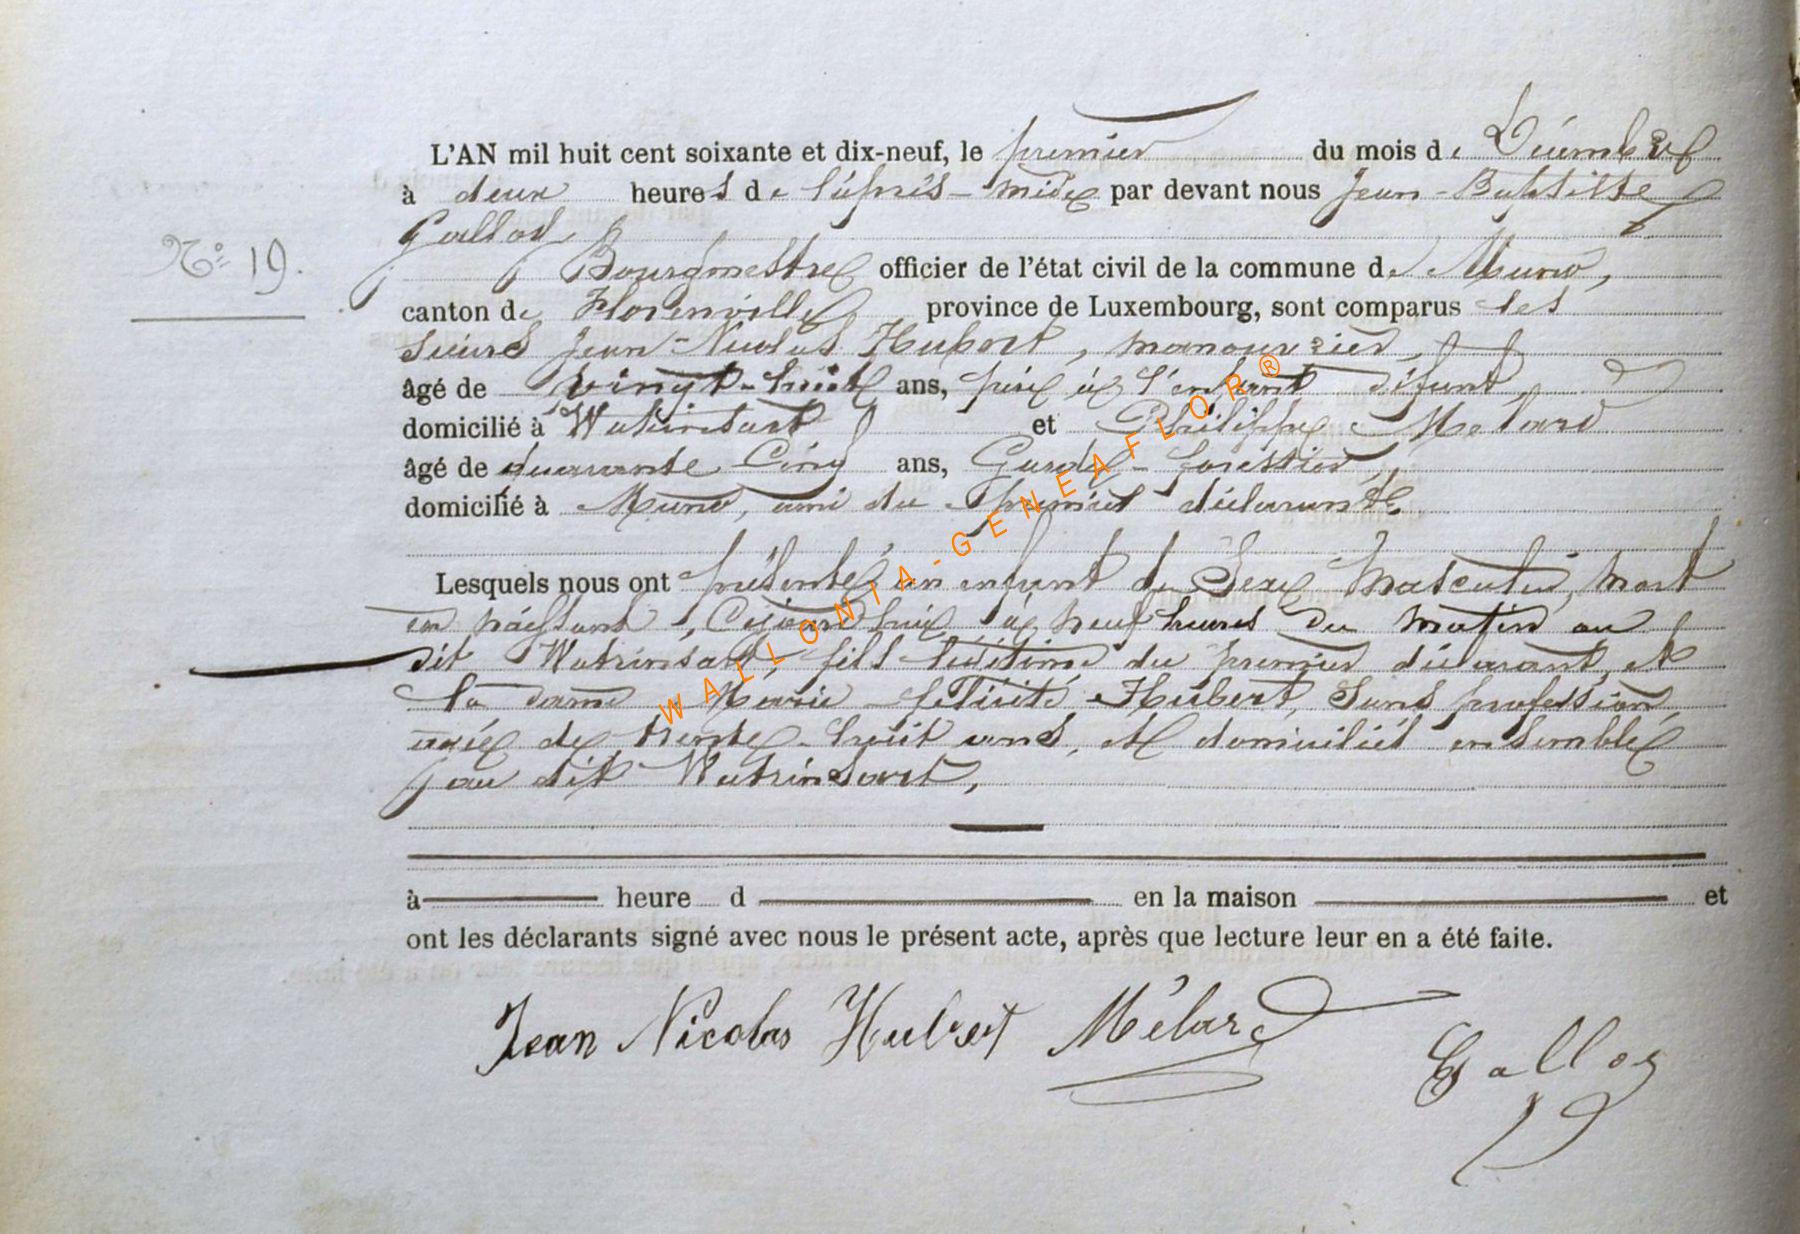 L'AN mil huit cent soixante et dix-neuf, le premier du mois de Décembre
à deux heures de l'après-midi par devant nous Jean-Baptiste
Galloy,
N° 19.
Bourgmestre officier de l'état civil de la commune de Muno,
canton de Florenville province de Luxembourg, sont comparus les
sieurs Jean-Nicolas Hubert, manouvrier,
âgé de vingt-huit ans, père à l'enfant défunt,
domicilié à Watrinsart et Philippe Mélard
âgé de quarante Cinq ans, Garde-forestier,
domicilié à Muno, ami du premier déclarant
Lesquels nous ont présenté un enfant du Sexe Masculin, mort
en naissant, Cejourd'hui à neuf heures du matin au
dit Watrinsart fils légitime du premier déclarant, et
la dame Marie-félicité Hubert, Sans profession,
agée de trente-huit ans, et domiciliés ensemble
au dit Watrinsart,
à heure d en la maison et
ont les déclarants signé avec nous le présent acte, après que lecture leur en a été faite.
Jean Nicolas Hubert Mélard
Galloy
WALLONIA-GENEAFLOR®